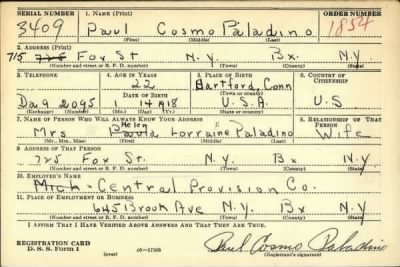 SERIAL NUMBER 1. NAME (Print) ORDER NUMBER
3409 Paul Cosmo Paladino 1854
(First) (Middle) (Last)
2. ADDRESS (Print)
715 Fox St N.Y. Bx. N.Y
(Number and street or R. F. D. number) (Town) (County) (State)
3. TELEPHONE 4. AGE IN YEARS 5. PLACE OF BIRTH 6. COUNTRY OF CITIZENSHIP
22 Hartford, Conn
DATE OF BIRTH (Town or county)
Da 9 2095 1 14 1918 U.S.A. U.S
(Exchange) (Number) (Mo.) (Day) (Yr.) (State or country)
7. NAME OF PERSON WHO WILL ALWAYS KNOW YOUR ADDRESS 8. RELATIONSHIP OF THAT PERSON
Helen
Mrs Paula Lorraine Paladino Wife
(Mr., Mrs., Miss) (First) (Middle) (Last)
9. ADDRESS OF THAT PERSON
725 Fox St. N.Y. Bx N.Y
(Number and street or R. F. D. number) (Town) (County) (State)
10. EMPLOYER'S NAME
Mich-Central Provision Co.
11. PLACE OF EMPLOYMENT OR BUSINESS
645 Brook Ave N.Y. Bx N.Y
(Number and street or R. F. D. number) (Town) (County) (State)
I AFFIRM THAT I HAVE VERIFIED ABOVE ANSWERS AND THAT THEY ARE TRUE.
REGISTRATION CARD
D. S. S. Form 1 (over) Paul Cosmo Paladino
(Registrant's signature)